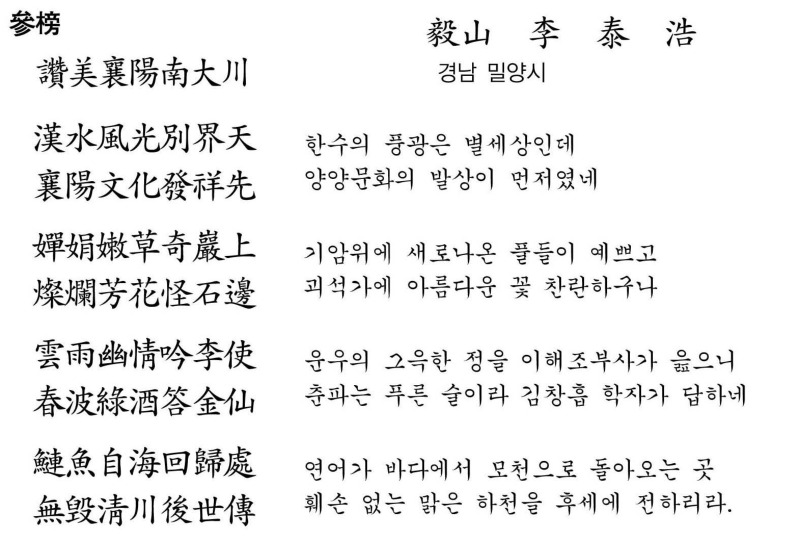 參榜
毅山 李 泰 浩
讚美襄陽南大川
경남 밀양시
漢水風光別界天 한수의 풍광은 별세상인데
襄陽文化發祥先 양양문화의 발상이 먼저였네
嬋娟嫩草奇巖上 기암위에 새로나온 풀들이 예쁘고
燦爛芳花怪石邊 괴석가에 아름다운 꽃 찬란하구나
雲雨幽情吟李使 운우의 그윽한 정을 이해조부사가 읊으니
春波綠酒答金仙 춘파는 푸른 술이라 김창흡 학자가 답하네
鰱魚自海回歸處 연어가 바다에서 모천으로 돌아오는 곳
無毁淸川後世傳 훼손 없는 맑은 하천을 후세에 전하리라.